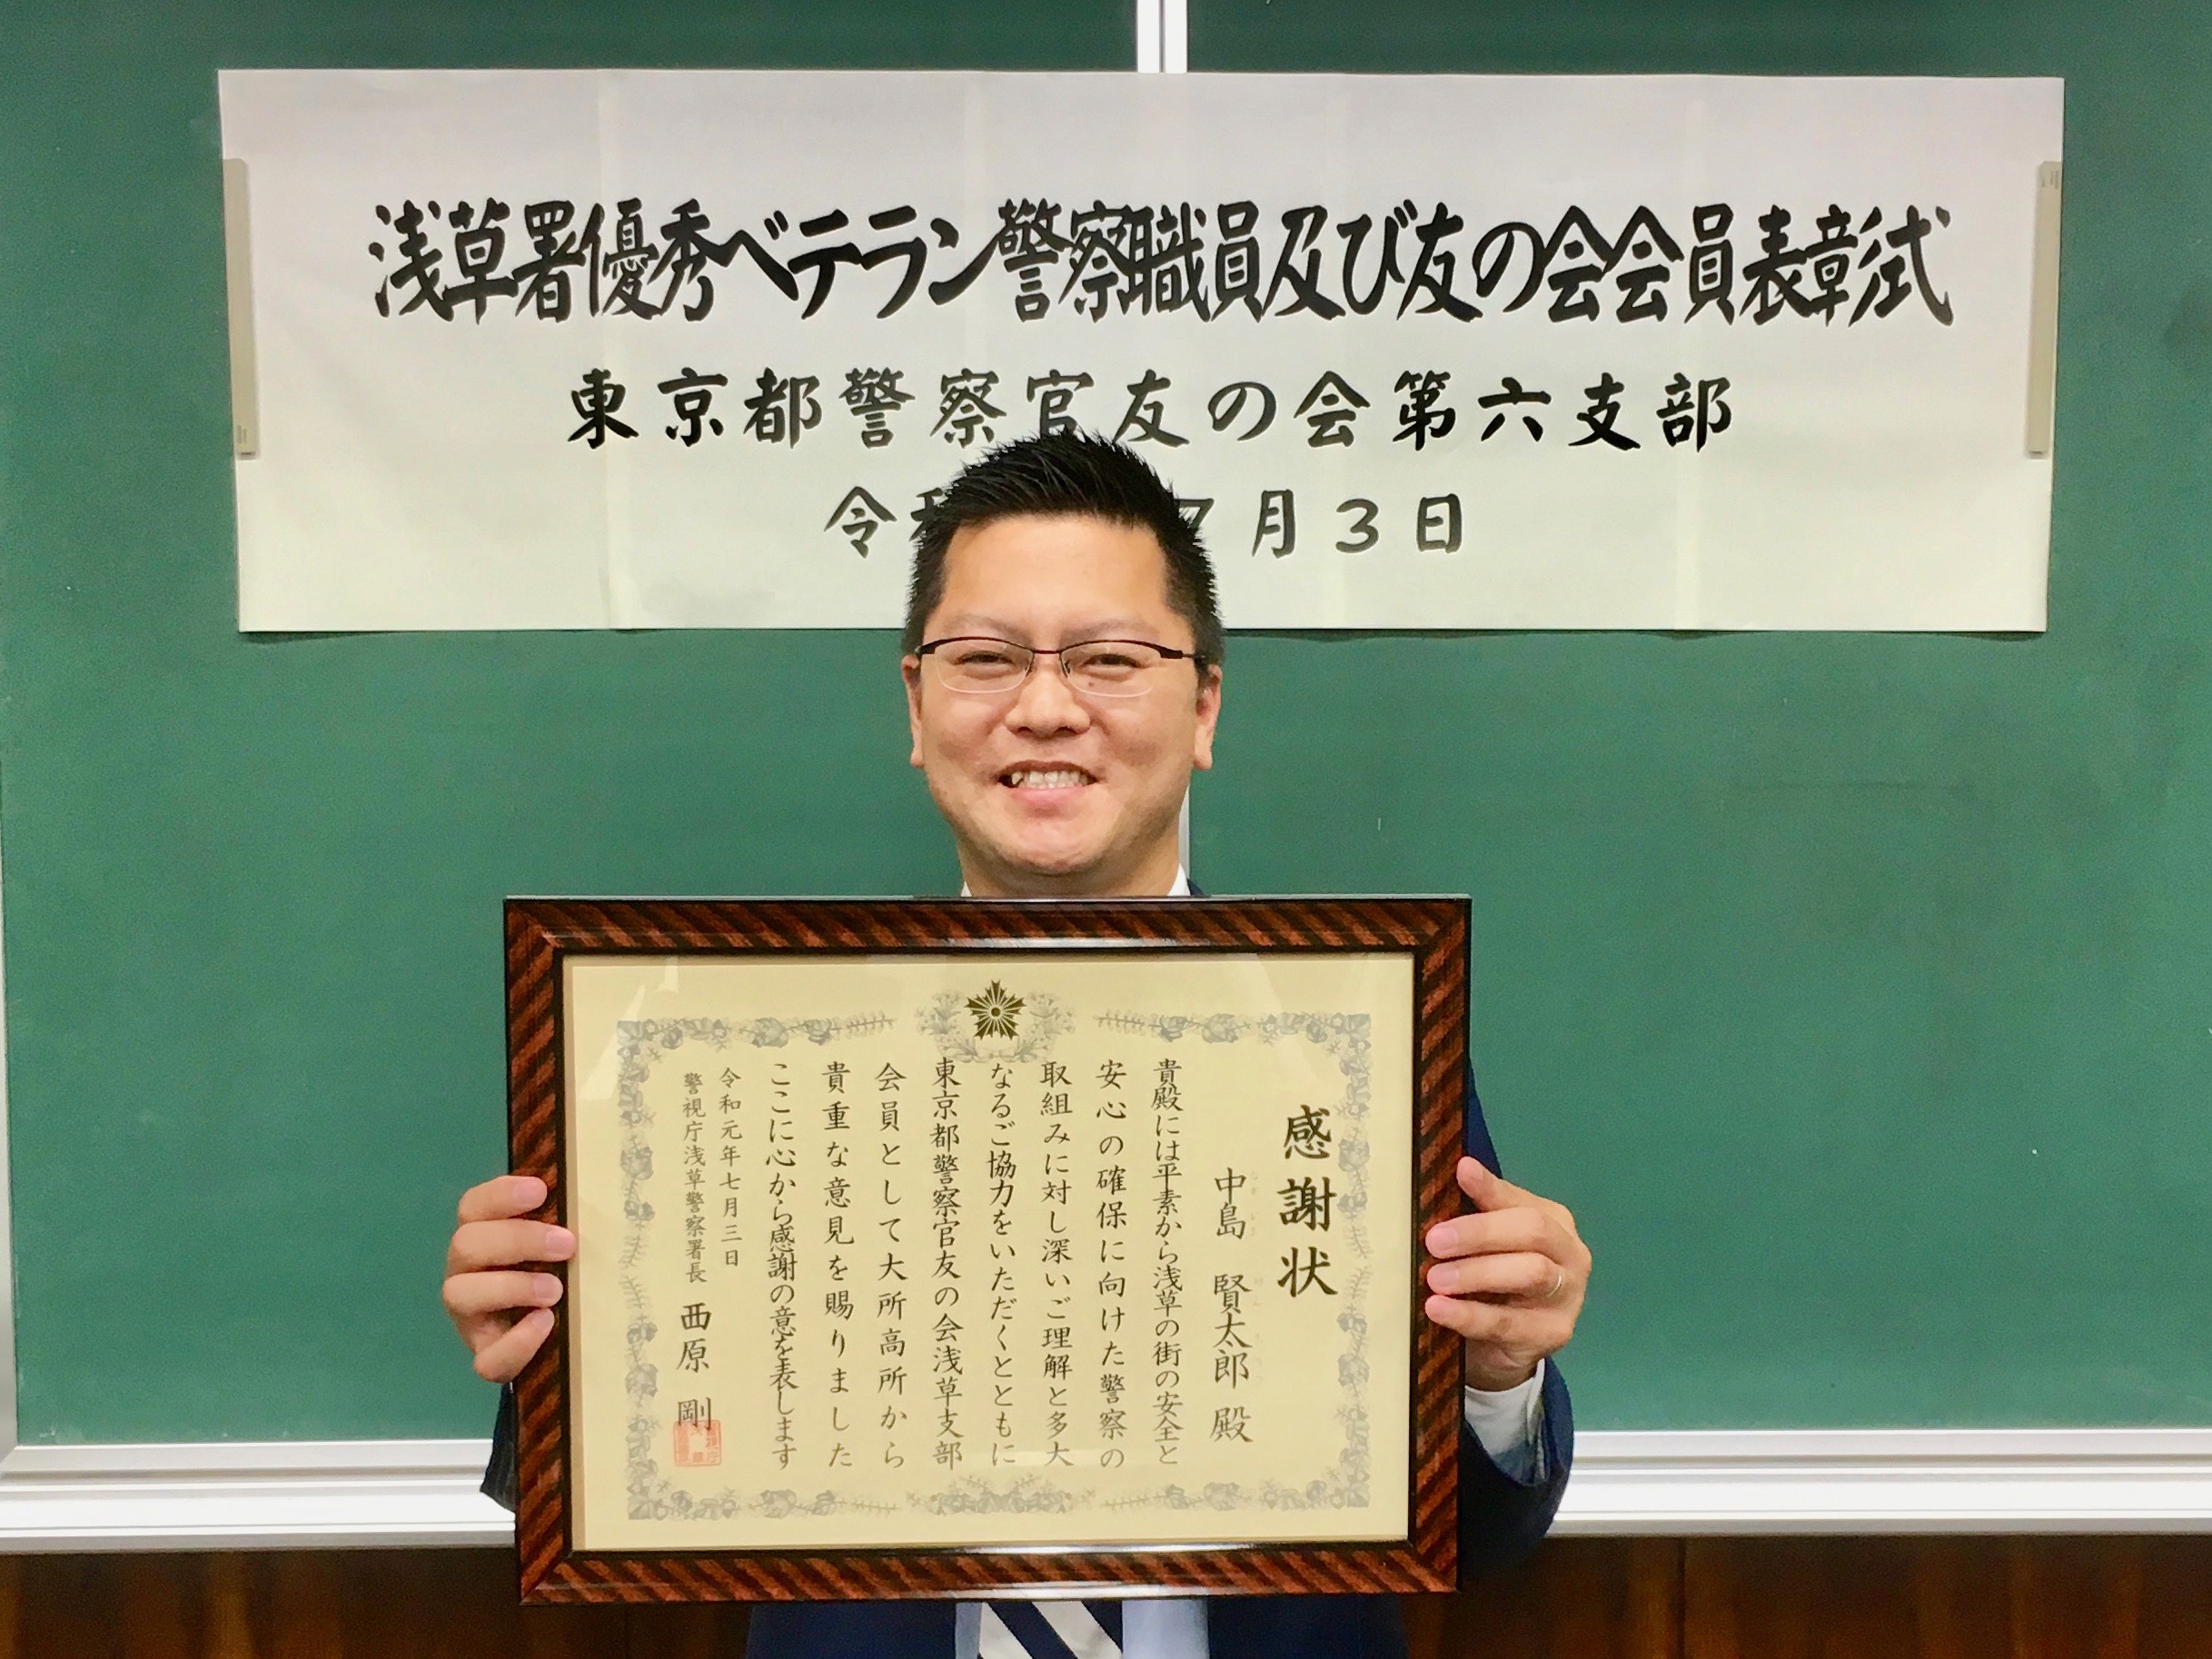 浅草署優秀ベテラン警察職員及び友の会会員表彰式
東京都警察官友の会第六支部
令和 7月3日
感謝状
中島 賢太郎 殿
貴殿には平素から浅草の街の安全と
安心の確保に向けた警察の
取組みに対し深いご理解と多大
なるご協力をいただくとともに
東京都警察官友の会浅草支部
会員として大所高所から
貴重な意見を賜りました
ここに心から感謝の意を表します
令和元年七月三日
警視庁浅草警察署長 西原 剛